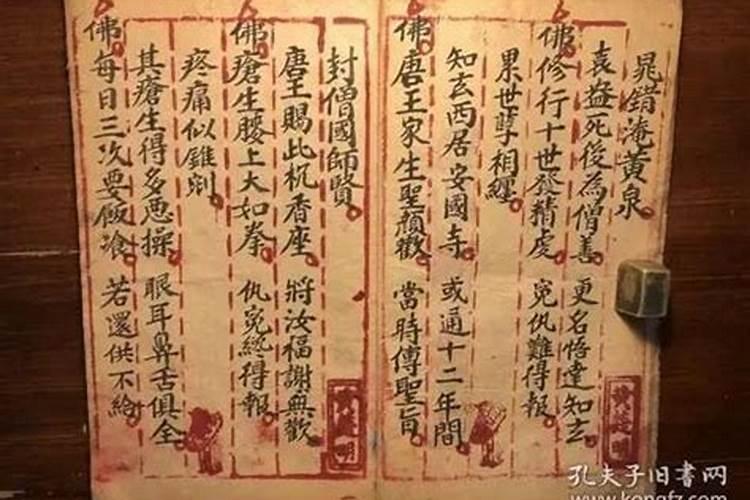 晁錯淹黄泉
袁盎死後為僧善 更名悟達知玄
佛修行十世發精虔 寃仇難得報
累世孽相纏
知玄西居安國寺 或通十二年間
佛唐王家生聖顏歡 當時傳聖旨
封僧國師賢
唐王賜此杌香座 將汝福謝無歡
佛瘡生腰上大如拳 仇寃總得報
疼痛似錐剜
其瘡生得多惡操 眼耳鼻舌俱全
佛每日三次要飯飡 若還供不給
孔夫子旧書网